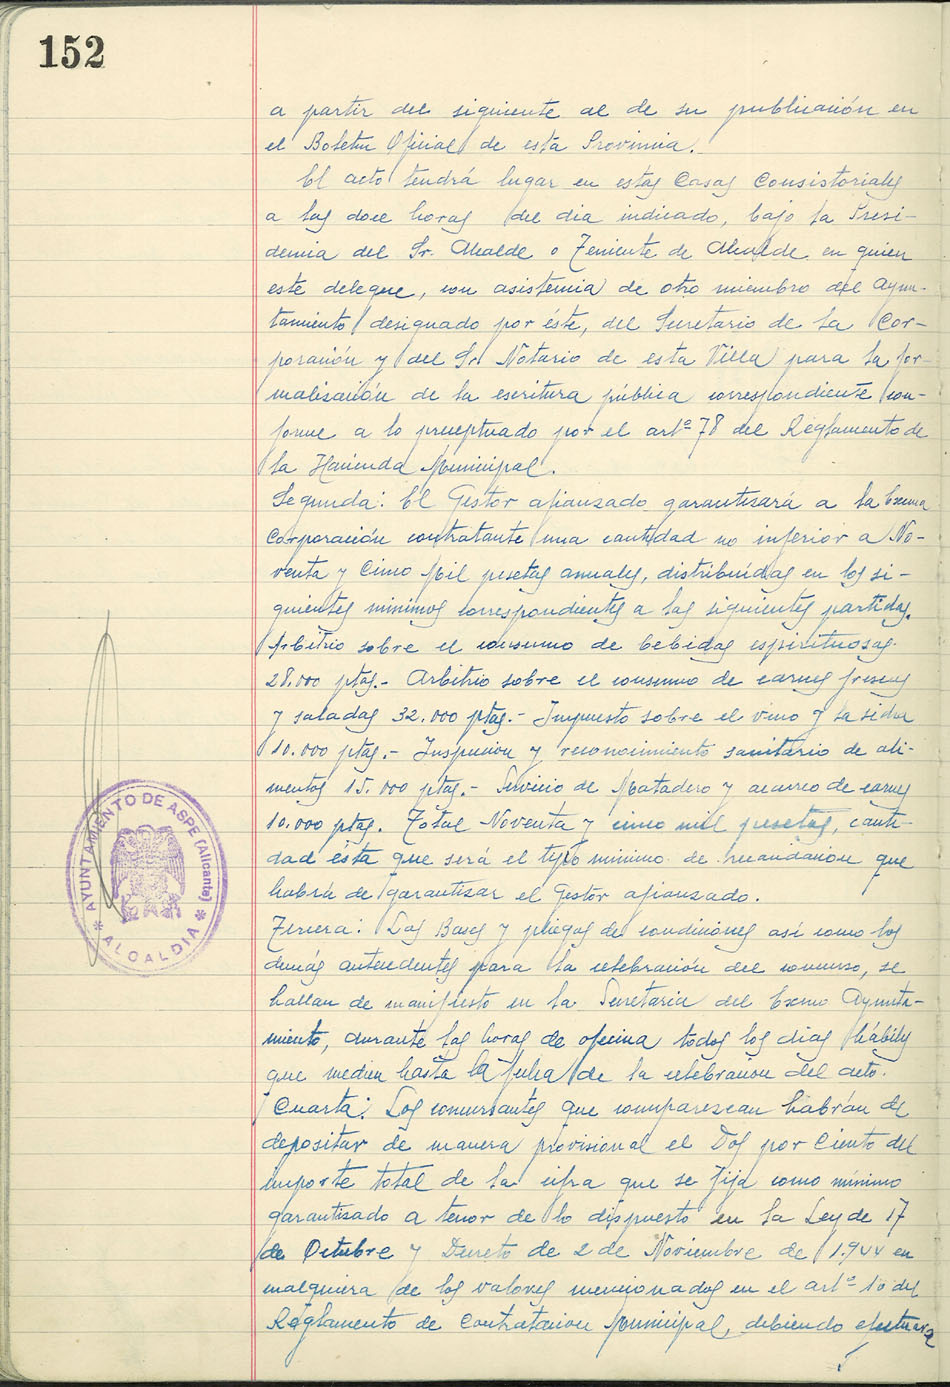 152
a partir del siguiente al de su publicación en
el Boletin Oficial de esta Provincia.
El acto tendrá lugar en estas Casas Consistoriales
a las doce horas del dia indicado, bajo la Presi-
dencia del Sr. Alcalde o Teniente de Alcalde en quien
este delegue, con asistencia de otro miembro del Ayun-
tamiento designado por éste, del Secretario de la Cor-
poración y del Sr. Notario de esta Villa para la for-
malización de la escritura pública correspondiente con-
forme a lo preceptuado por el artº 78 del Reglamento de
la Hacienda Municipal.
Segunda: El Gestor afianzado garantizará a la Excma
Corporación contratante una cantidad no inferior a No-
venta y Cinco Mil pesetas anuales, distribuidas en los si-
guientes minimos correspondientes a las siguientes partidas.
Arbitrio sobre el consumo de bebidas espirituosas.
28.000 ptas.- Arbitrio sobre el consumo de carnes frescas
y saladas 32.000 ptas.- Impuesto sobre el vino y la sidra
10.000 ptas.- Inspección y reconocimiento sanitario de ali-
mentos 15.000 ptas.- Servicio de Matadero y acarreo de carnes
10.000 ptas. Total Noventa y cinco mil pesetas, canti-
dad ésta que será el tipo minimo de recaudación que
habrá de garantizar el Gestor afianzado.
Tercera: Las Bases y pliegos de condiciones asi como los
demás antecedentes para la celebración del concurso, se
hallan de manifiesto en la Secretaria del Excmo Ayunta-
miento, durante las horas de oficina todos los dias hábiles
que medien hasta la fecha de la celebración del acto.
Cuarta: Los concursantes que comparezcan habrán de
depositar de manera provisional el Dos por Ciento del
importe total de la cifra que se fija como mínimo
garantizado a tenor de lo dispuesto en la Ley de 17
de Octubre y Decreto de 2 de Noviembre de 1.944 en
cualquiera de los valores mencionados en el artº 10 del
Reglamento de Contratación Municipal, debiendo efectuar
AYUNTAMIENTO DE ASPE (Alicante)
* ALCALDIA *